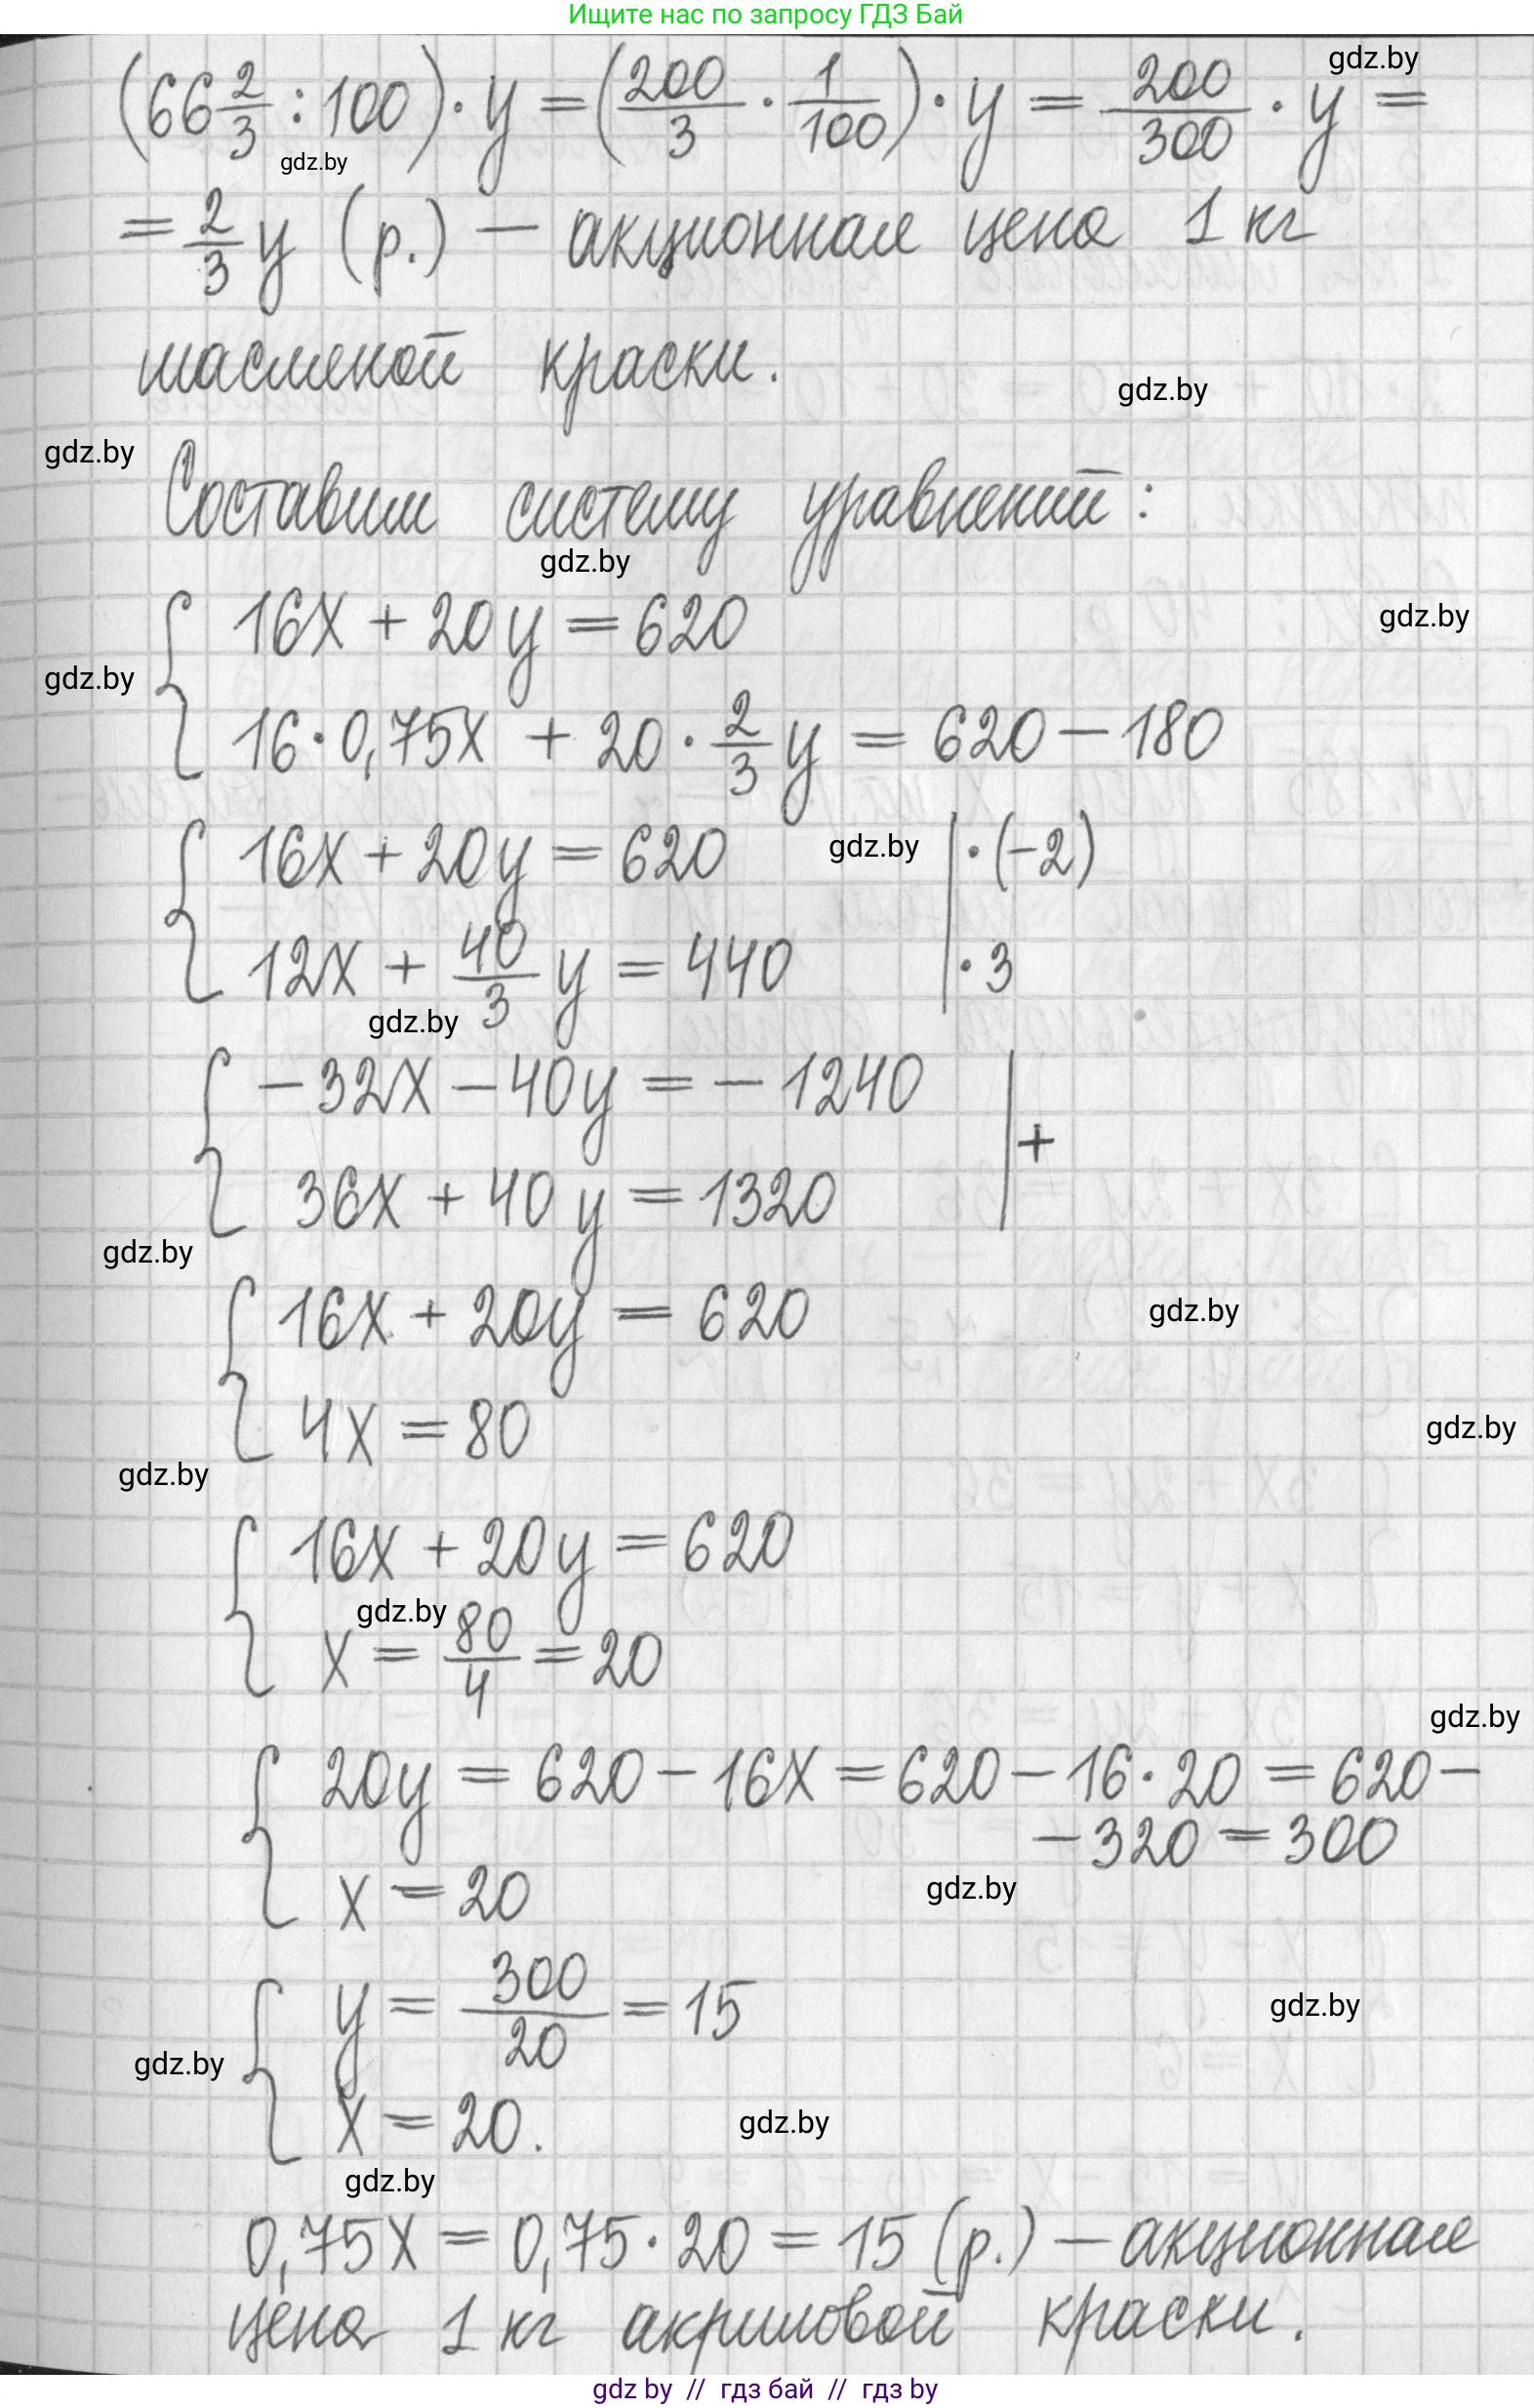 Ищите нас по запросу ГДЗ Бай
(66 2/3 : 100) · y = (200/3 · 1/100) · y = 200/300 · y =
gdz.by
gdz.by
= 2/3 y (р.) — акционная цена 1 кг
масляной краски.
gdz.by
gdz.by
Составим систему уравнений:
gdz.by
{ 16x + 20y = 620
gdz.by
gdz.by
16 · 0,75x + 20 · 2/3 y = 620 – 180
{ 16x + 20y = 620 | · (–2)
gdz.by
12x + 40/3 y = 440 | · 3
gdz.by
{ – 32x – 40y = – 1240 | +
36x + 40y = 1320
gdz.by
{ 16x + 20y = 620
gdz.by
4x = 80
gdz.by
gdz.by
{ 16x + 20y = 620
gdz.by
x = 80/4 = 20
gdz.by
{ 20y = 620 – 16x = 620 – 16 · 20 = 620 –
– 320 = 300
gdz.by
x = 20
{ y = 300/20 = 15
gdz.by
gdz.by
x = 20.
gdz.by
gdz.by
0,75x = 0,75 · 20 = 15 (р.) — акционная
цена 1 кг акриловой краски.
gdz by // гдз бай // гдз by